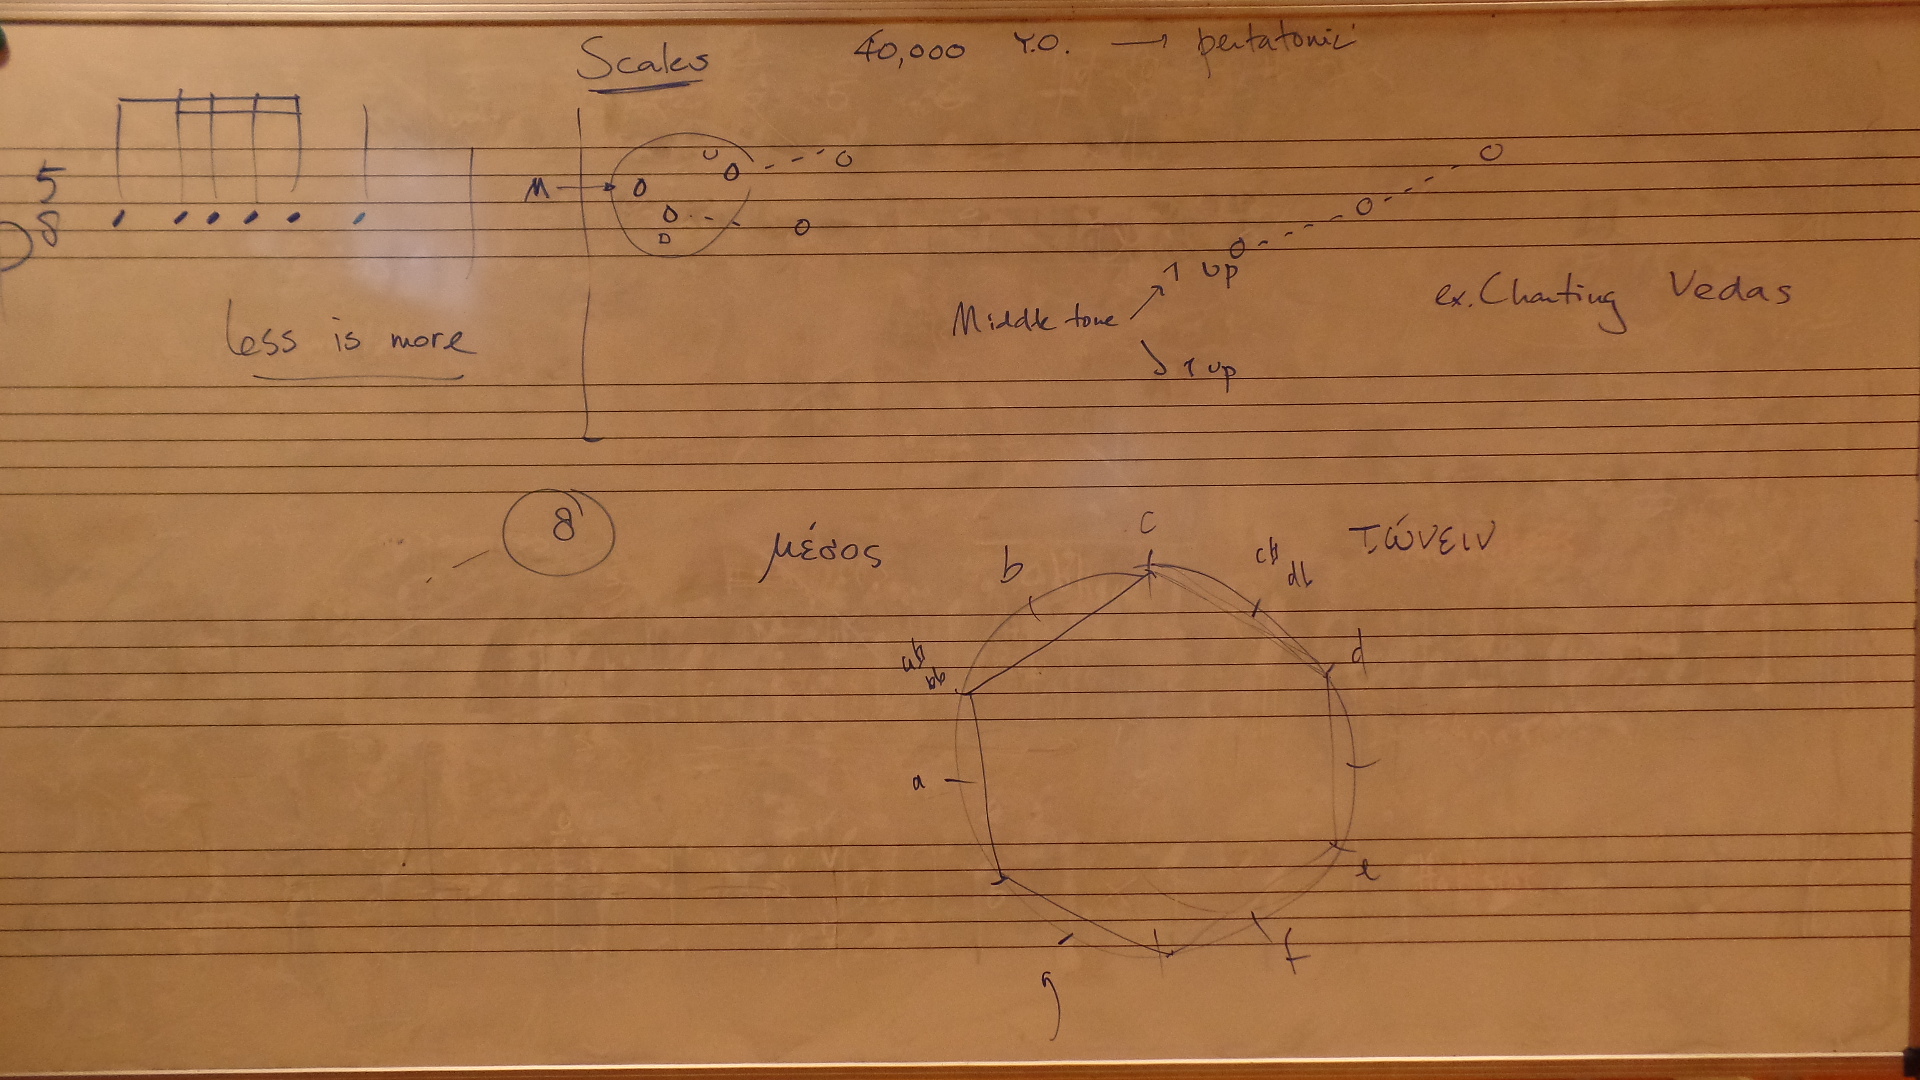 Scales
40,000 Y.O. → pentatonic
5
8
M →
U
D
less is more
Middle tone
↑ up
↑ up
ex. Chanting Vedas
8
μέσος
τώνειν
c
c# db
d
e
f
g
a
a# bb
b